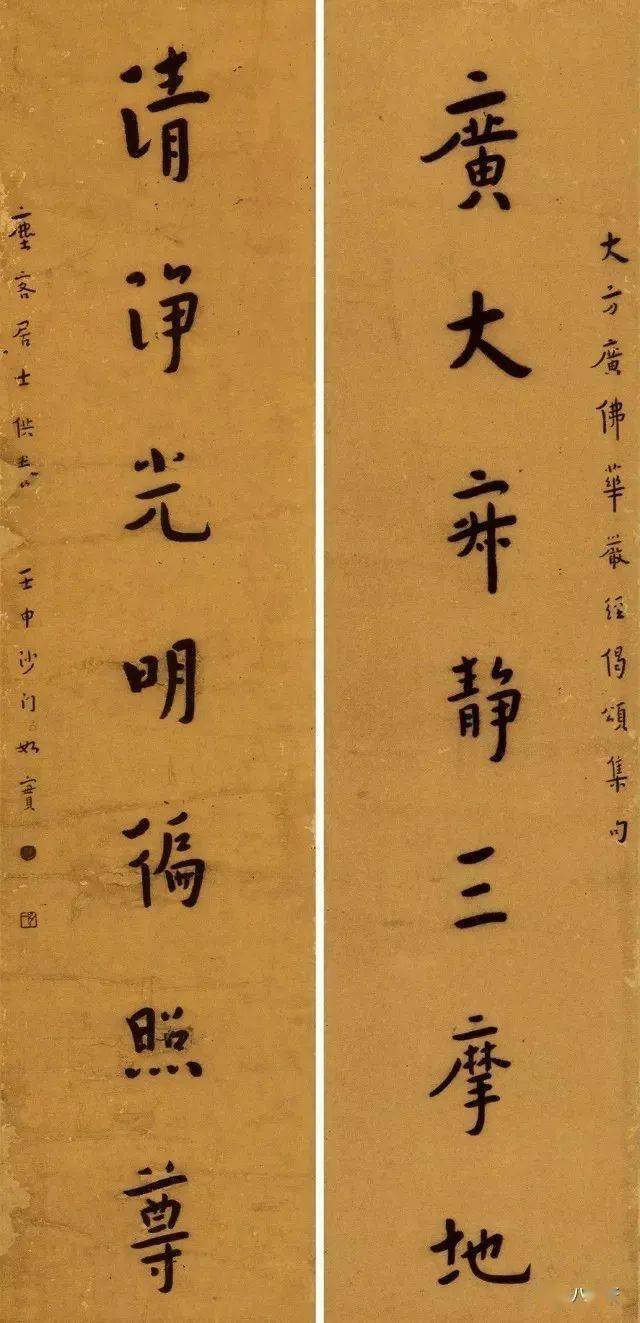 大方廣佛華嚴經偈頌集句
廣大寂靜三摩地
清淨光明徧照尊
塵客居士供養
壬申沙門如實